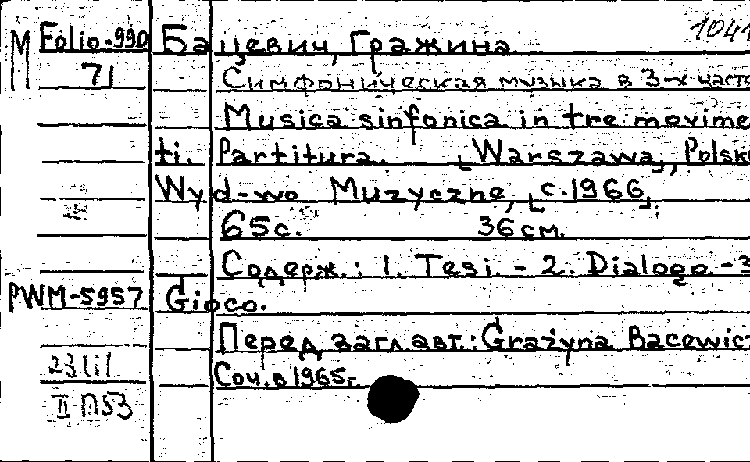 1041
М Folio-990 Бацевич, Гражина
71 Симфоническая музыка в 3-х часто
Musica sinfonica in tre movime
ti. Partitura. [Warszawa], Polsk
Wyd-wo Muzyczne, [c.1966].
65с. 36см.
Содерж.: 1. Tesi. - 2. Dialogo. - 3
PWM-5957 Gioco.
Перед загл. авт.: Grażyna Bacewic
Соч. в 1965г.
II П53